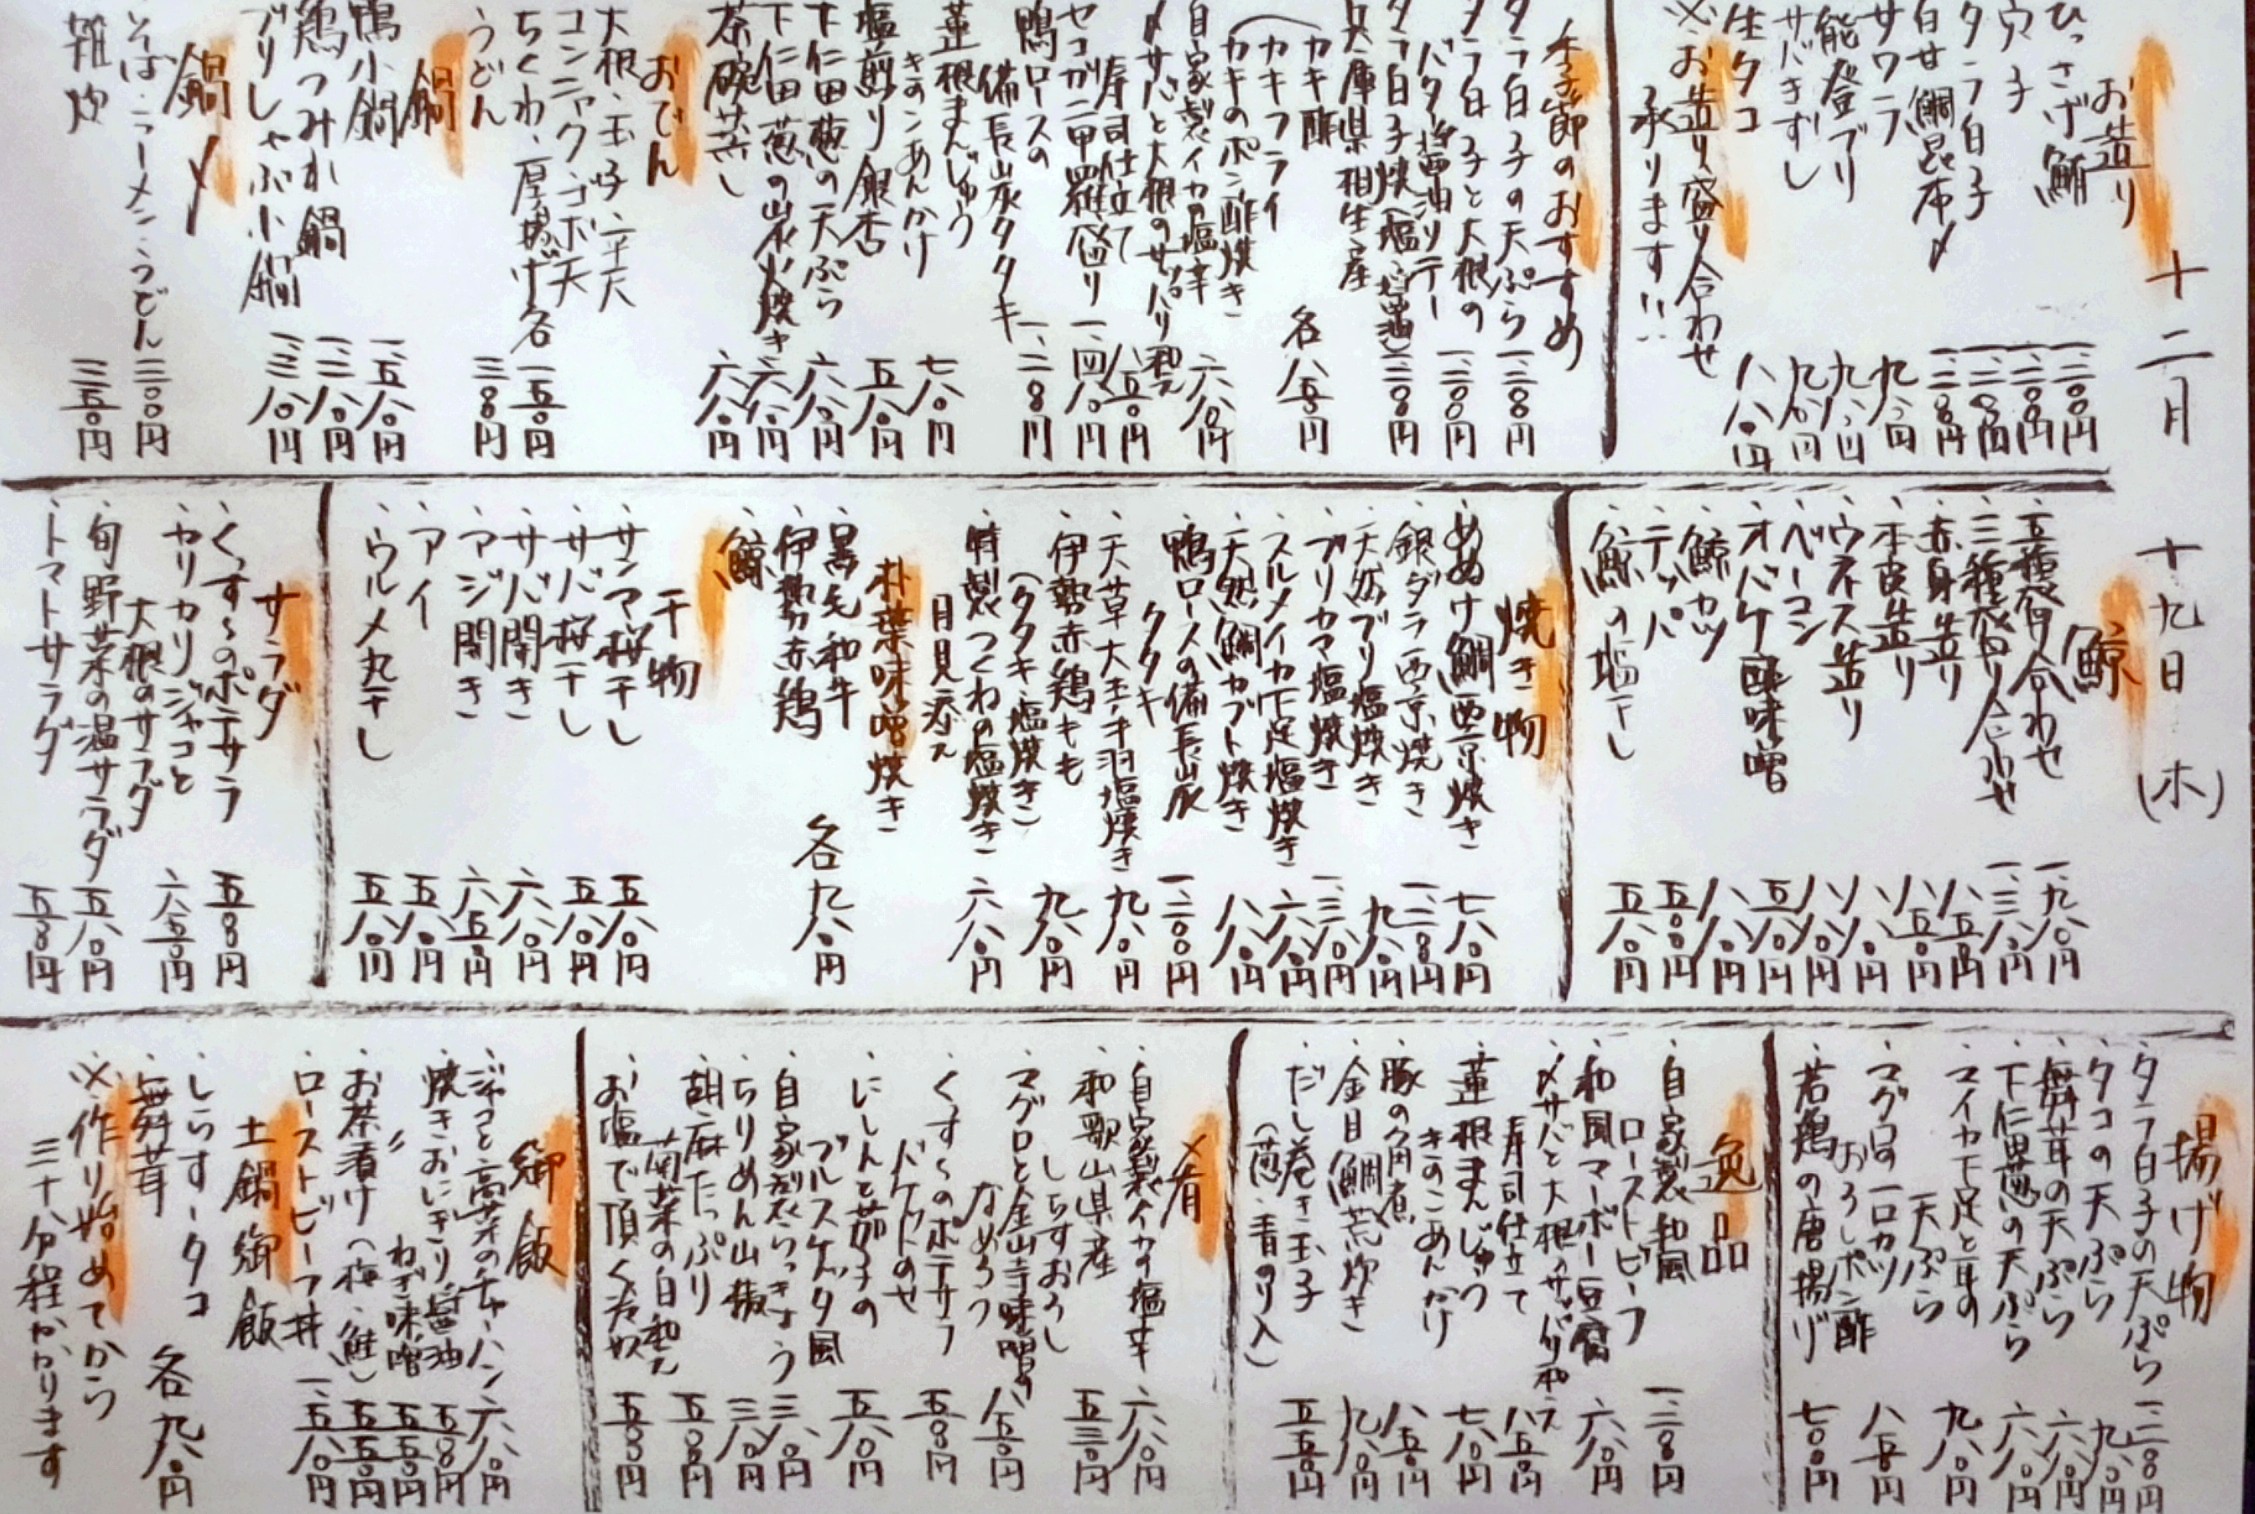 十二月 十九日 (木)
お造り
ひっさげ鮪 一、二〇〇円
穴子 一、二〇〇円
タラ白子
白甘鯛昆布〆
サワラ
能登ブリ
サバきずし
生タコ 八八〇円
※お造り盛り合わせ
承ります!!
季節のおすすめ
タラ白子の天ぷら
タラ白子と大根の
バタ醤油ソテー
タラ白子焼
兵庫県相生産
カキ酢
カキフライ
カキのポン酢焼き
各八五〇円
自家製イカの塩辛 六八〇円
〆サバと大根のサッパリ和え
寿司仕立て 八五〇円
セコガニ甲羅盛り 一、四八〇円
鴨ロースの
備長炭タタキ
蓮根まんじゅう
きのこあんかけ 七八〇円
塩煎り銀杏 五八〇円
下仁田葱の天ぷら 六八〇円
下仁田葱の炭火焼き 六八〇円
茶碗蒸し 六八〇円
おでん
大根・玉子・平天
コンニャク・ゴボ天
ちくわ・厚揚げ 各一五〇円
うどん 三〇〇円
鍋
鴨小鍋 一、五八〇円
鶏つみれ鍋
ブリしゃぶ小鍋
鍋〆
そば・ラーメン・うどん 三〇〇円
雑炊 三五〇円
鯨
・五種盛り合わせ 一、九八〇円
・三種盛り合わせ 一、三八〇円
・赤身造り 八五〇円
・本皮造り 八五〇円
・ウネス造り 八八〇円
・ベーコン 八八〇円
・オバケ酢味噌 五八〇円
・鯨カツ 八八〇円
・テッパ 五八〇円
・鯨の塩干し 五八〇円
焼き物
・めぬけ鯛西京焼き 七八〇円
・銀ダラ西京焼き
・天然ブリ塩焼き 九八〇円
・ブリカマ塩焼き
・スルメイカ下足塩焼き 六八〇円
・天然鯛カブト焼き 八八〇円
・鴨ロースの備長炭
タタキ
・天草大王手羽塩焼き 九八〇円
・伊勢赤鶏もも
(タタキ・塩焼き) 九八〇円
・特製つくねの塩焼き 六八〇円
月見添え
朴葉味噌焼き
・黒毛和牛
・伊勢赤鶏
・鯨
各九八〇円
干物
・サンマ桜干し 五八〇円
・サバ桜干し 五八〇円
・サバ開き 六八〇円
・アジ開き 六五〇円
・アイ 五八〇円
・ウルメ丸干し 五八〇円
サラダ
・くっす〜のポテサラ 五〇〇円
・カリカリジャコと
大根のサラダ 六五〇円
・旬野菜の温サラダ 五八〇円
・トマトサラダ 五〇〇円
揚げ物
・タラ白子の天ぷら
・タコの天ぷら 九八〇円
・舞茸の天ぷら 六八〇円
・下仁田葱の天ぷら 六八〇円
・マイカ下足と茸の
天ぷら 九八〇円
・マグロ一口カツ
おろしポン酢 八五〇円
・若鶏の唐揚げ 七〇〇円
逸品
・自家製和風
ローストビーフ
・和風マーボー豆腐 六八〇円
・〆サバと大根のサッパリ和え
寿司仕立て 八五〇円
・蓮根まんじゅう
きのこあんかけ 七八〇円
・豚の角煮 八五〇円
・金目鯛荒炊き 九八〇円
・だし巻き玉子
(葱・青のり入) 五五〇円
〆肴
・自家製イカの塩辛 六八〇円
・和歌山県産
しらすおろし
・マグロと金山寺味噌の
なめろう 八五〇円
・くす〜のポテサラ
バケットのせ 五〇〇円
・にしんと茄子の
ブルスケッタ風 五八〇円
・自家製らっきょう 三八〇円
・ちりめん山椒 三八〇円
・胡麻たっぷり
菊菜の白和え 五〇〇円
・お塩で頂く冷奴 五〇〇円
御飯
・ジャコと高菜のチャーハン 六八〇円
・焼きおにぎり醤油 五〇〇円
〃 ねぎ味噌 五五〇円
・お茶漬け(梅・鮭) 五五〇円
・ローストビーフ丼 一、五八〇円
土鍋御飯
・しらす・タコ
・舞茸
各九八〇円
※作り始めてから
三十分程かかります